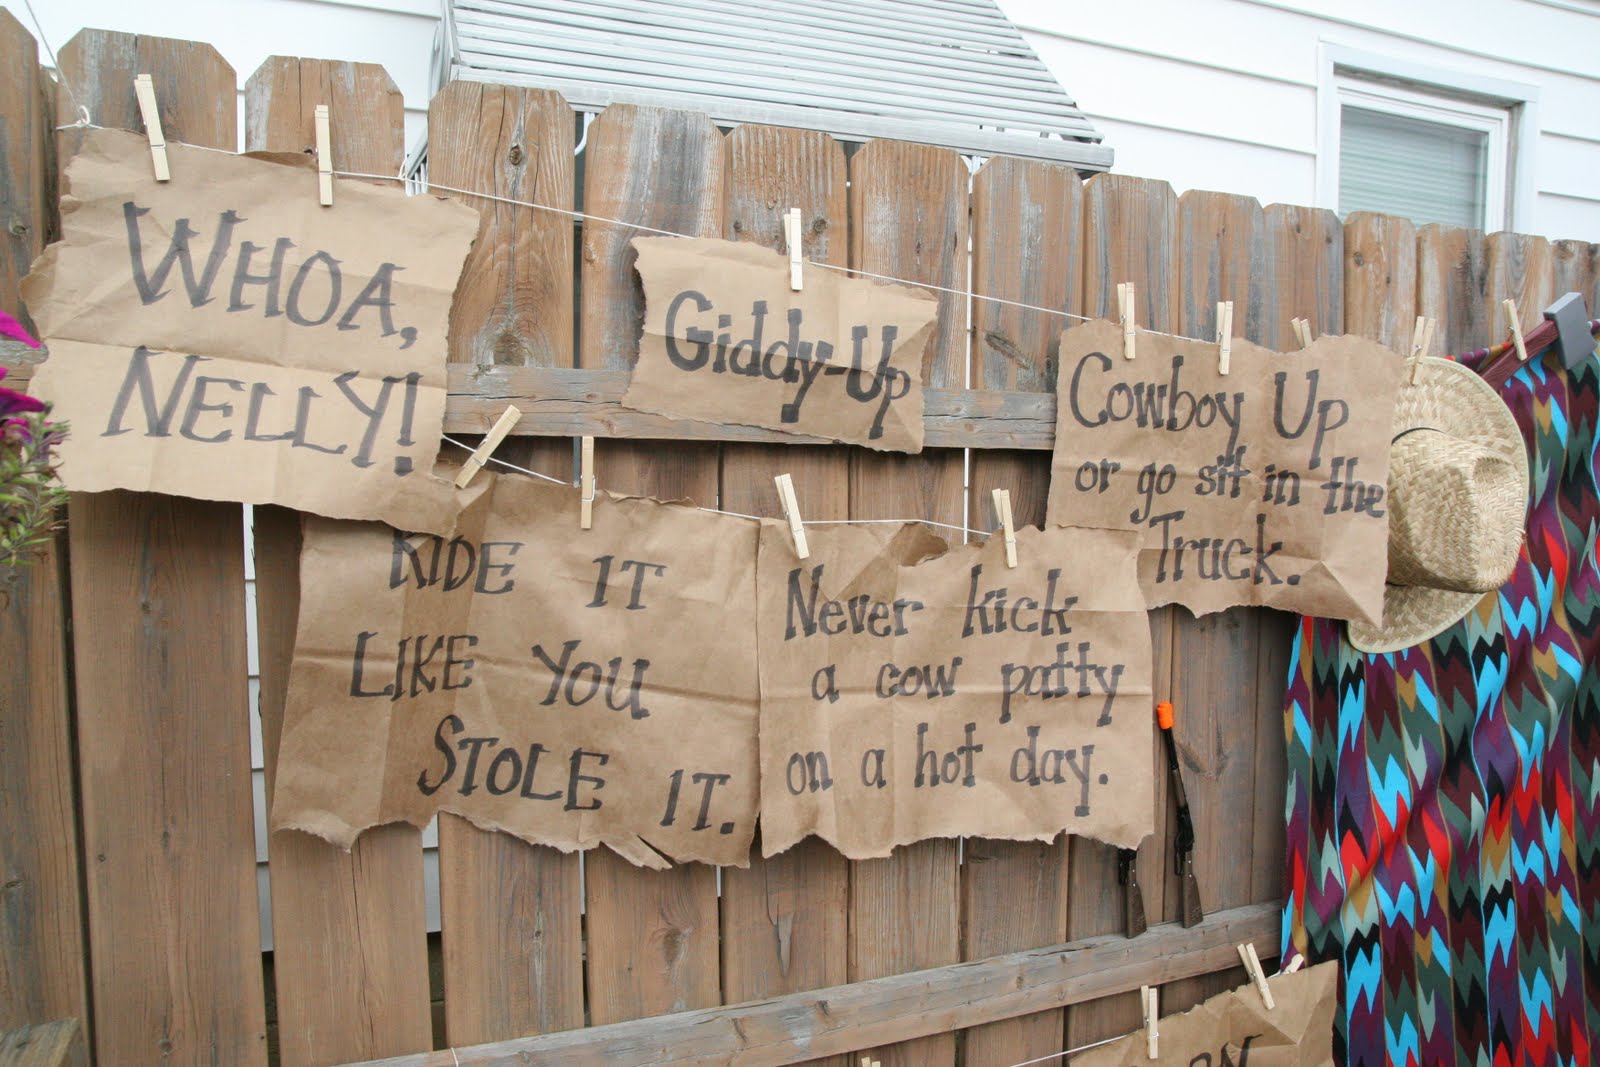 WHOA,
NELLY!
Giddy-Up
Cowboy Up
or go sit in the
Truck.
RIDE IT
LIKE YOU
STOLE IT.
Never kick
a cow patty
on a hot day.